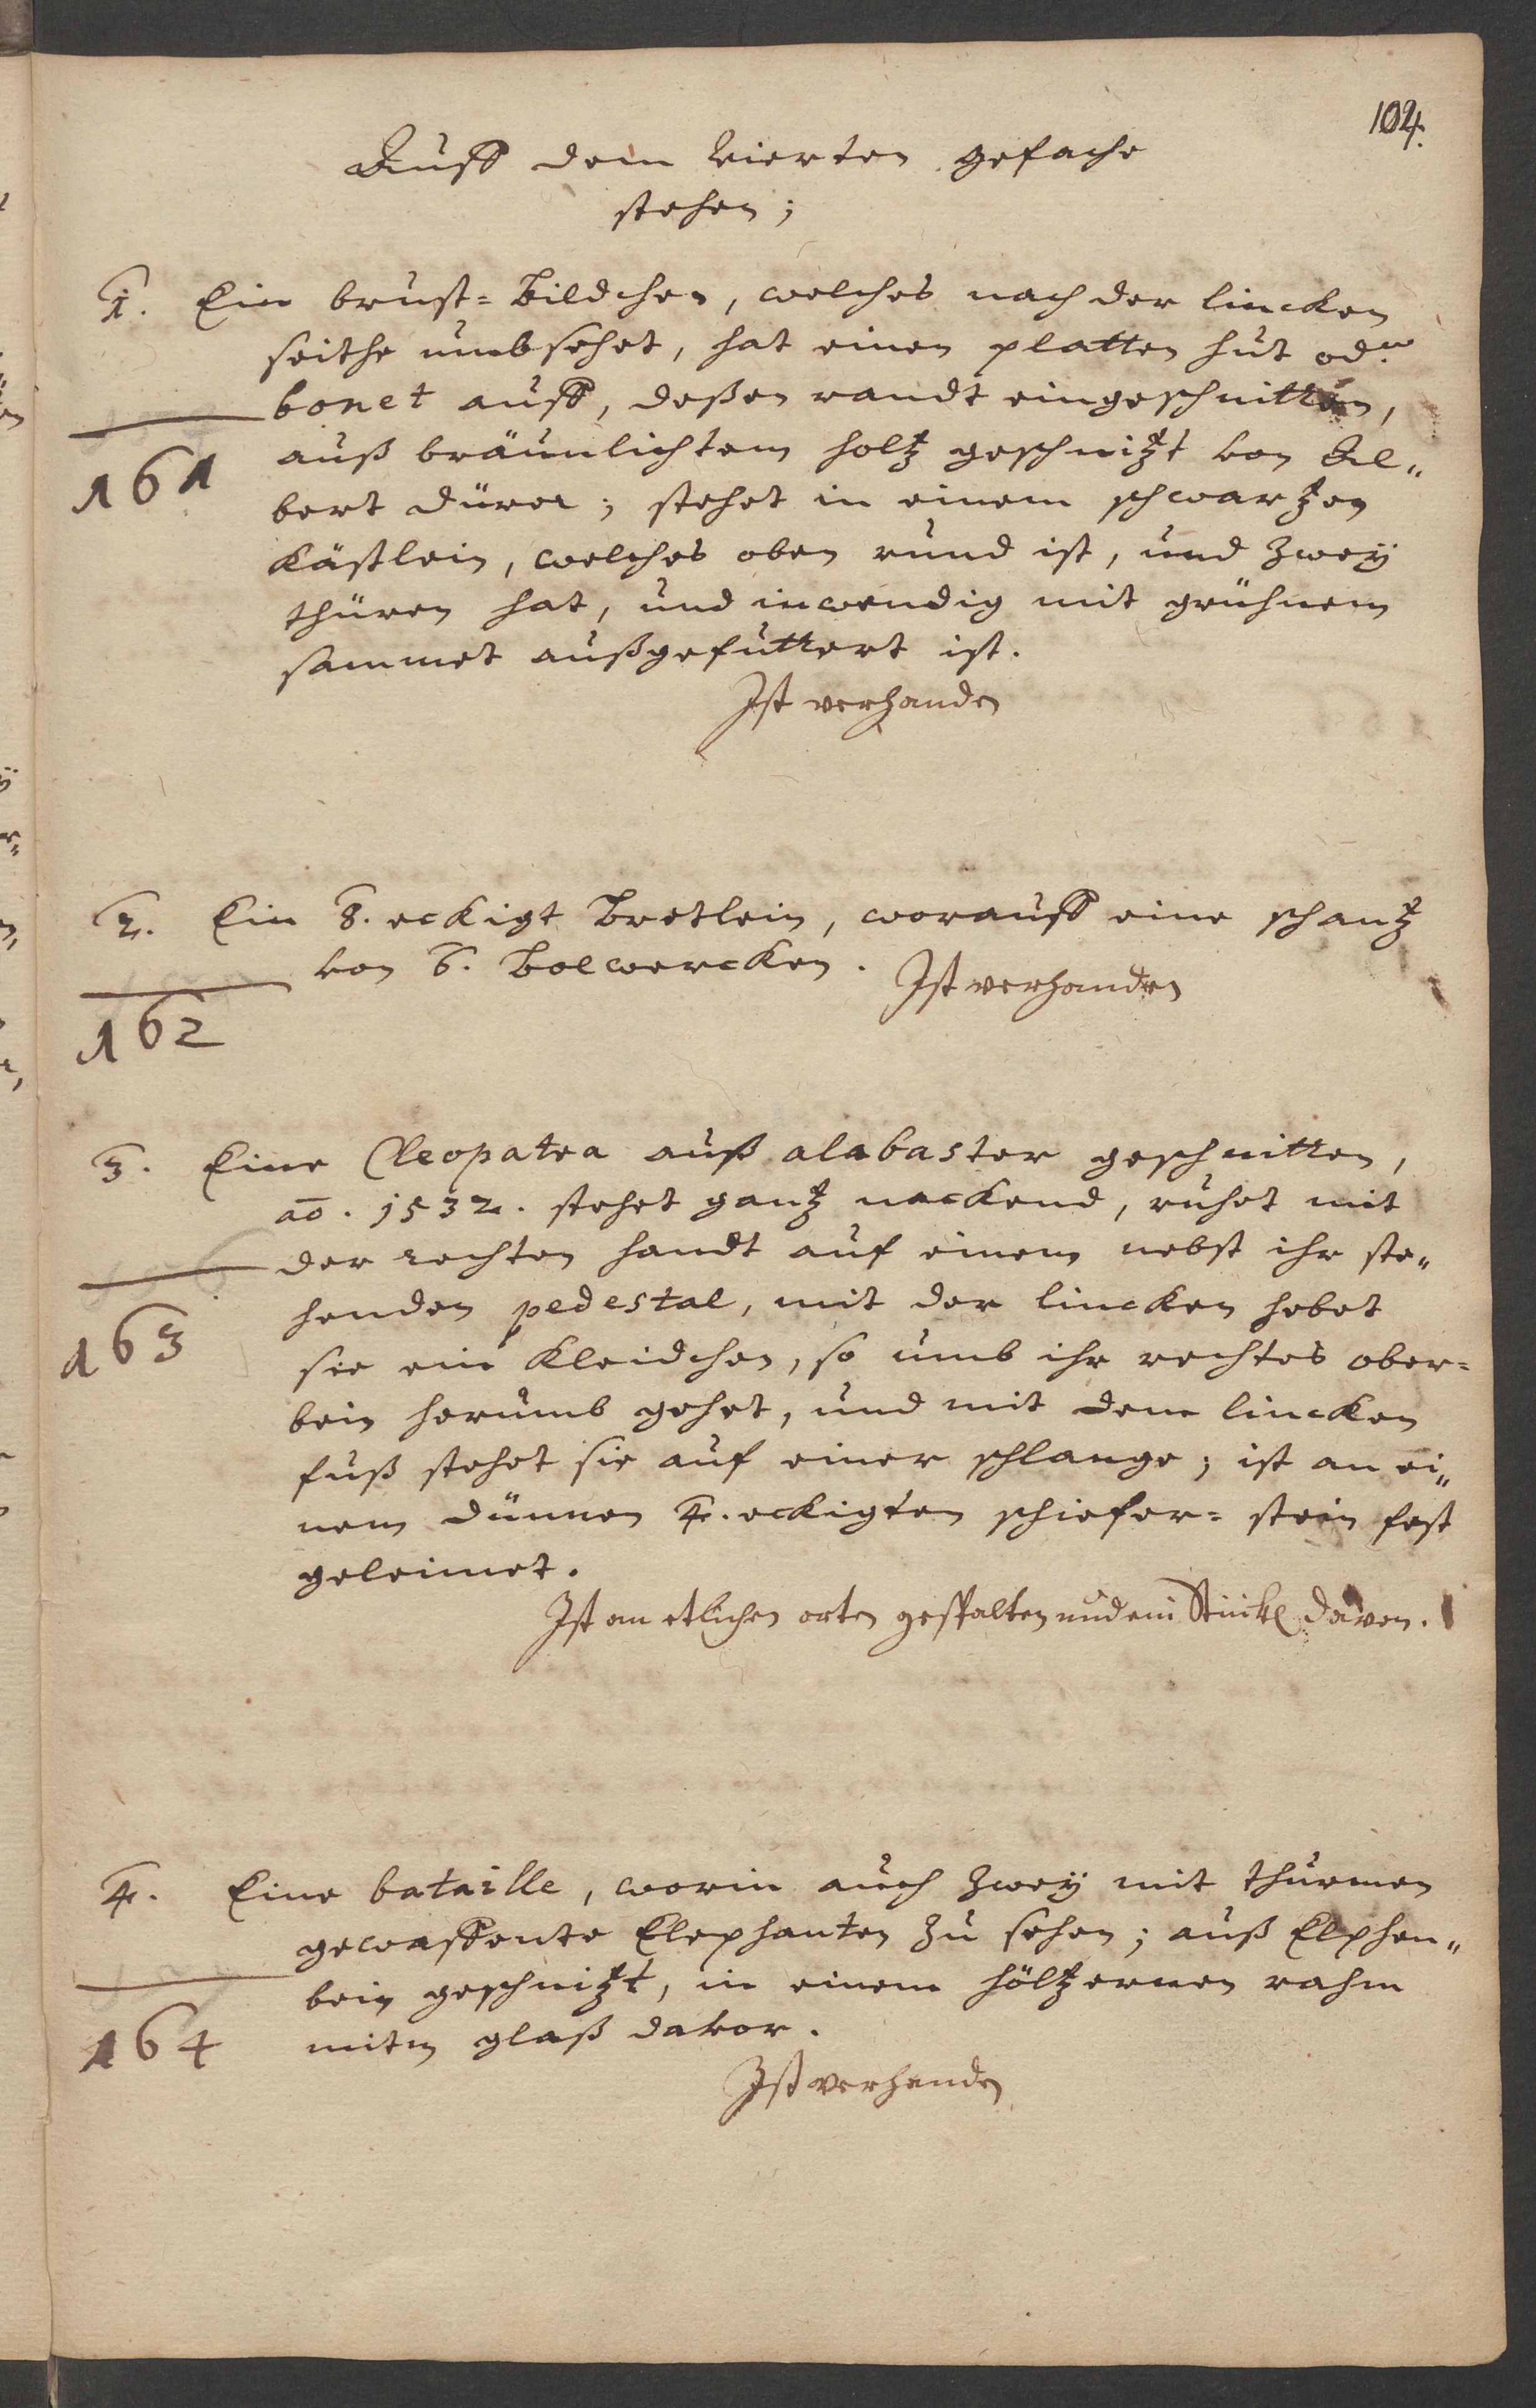 104.
Auff dem vierten gefache
stehen;
1. Ein brust=Bildchen, welches nach der lincken
seithe umbsehet, hat einen platten hut od.r
bonet auff, deßen randt eingeschnitten,
161
auß bräunlichtem holtz geschnitzt von Al„
bert Dürer; stehet in einem schwartzen
Kästlein, welches oben rund ist, und zweÿ
thüren hat, und inwendig mit grühnem
sammet außgefuttert ist.
Ist verhanden
2. Ein 8. eckigt Bretlein, worauff eine schantz
von 6. Bolwercken. Ist verhanden
162
3. Eine Cleopatra auß alabaster geschnitten,
aō. 1532. stehet gantz nackend, ruhet mit
der rechten handt auf einem nebst ihr ste„
henden pedestal, mit der lincken hebet
163
sie ein Kleidchen, so umb ihr rechtes ober=
bein herumb gehet, und mit dem lincken
fuß stehet sie auf einer schlange; ist an ei„
nem dünnen 4. eckigten schiefer=stein fest
geleimet.
Ist an etlichen orten gespalten und ein Stückl davon.
4. Eine bataille, worin auch zweÿ mit thürmen
gewaffente Elephanten zu sehen; auß Elphen„
bein geschnitzt, in einem höltzernen rahm
164
mitm glaß davor.
Ist verhanden